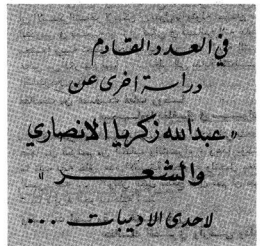 في العدد القادم
دراسة اخرى عن
« عبدالله زكريا الانصاري
والشعــــر »
لاحدى الاديبات ...